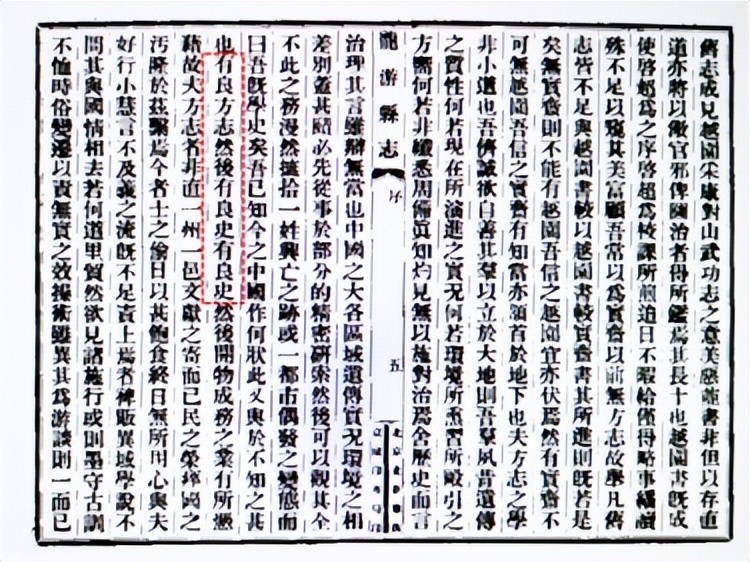 舊志成見越園宗康對山武功志之意美惡並書非但以存直
道亦將以儆官邪俾閱治者得所鑑焉其長十也越園書旣成
使啓超爲之序啓超爲校課所煎迫日不暇給僅得略事繙讀
殊不足以窺其美富顧吾常以爲實齋以前無方志故舉凡舊
志皆不足與越園書較以越園書較實齋書其所進則旣若是
矣無實齋則不能有越園吾信之越園宜亦伏焉然有實齋不
可無越園吾信之實齋有知當亦頷首於地下也夫方志之學
非小道也吾儕誠欲自善其羣以立於大地則吾羣夙昔遺傳
之質性何若現在所演進之實況何若環境所熏習所引之
方嚮何若非纖悉周備眞知灼見無以施對治焉舍歷史而言
龍游縣志
序
五
治理其言雖辯無當也中國之大各區域遺傳實況環境之相
差別蓋甚賾必先從事於部分的精密硏索然後可以觀其全
不此之務漫然摭拾一姓興亡之跡或一都市偶發之變態而
曰吾旣學史矣吾已知今之中國作何狀此又與於不知之甚
也有良方志然後有良史有良史然後開物成務之業有所憑
藉故夫方志者非直一州一邑文獻之寄而已民之榮瘁國之
汚隆於茲繫焉今者士之偷日以甚飽食終日無所用心與夫
好行小慧言不及義之流旣不足責上焉者裨販異域學說不
問其與國情相去若何道里貿然欲見諸施行或則墨守古訓
不恤時俗變遷以責無實之效操術雖異其爲游談則一而已